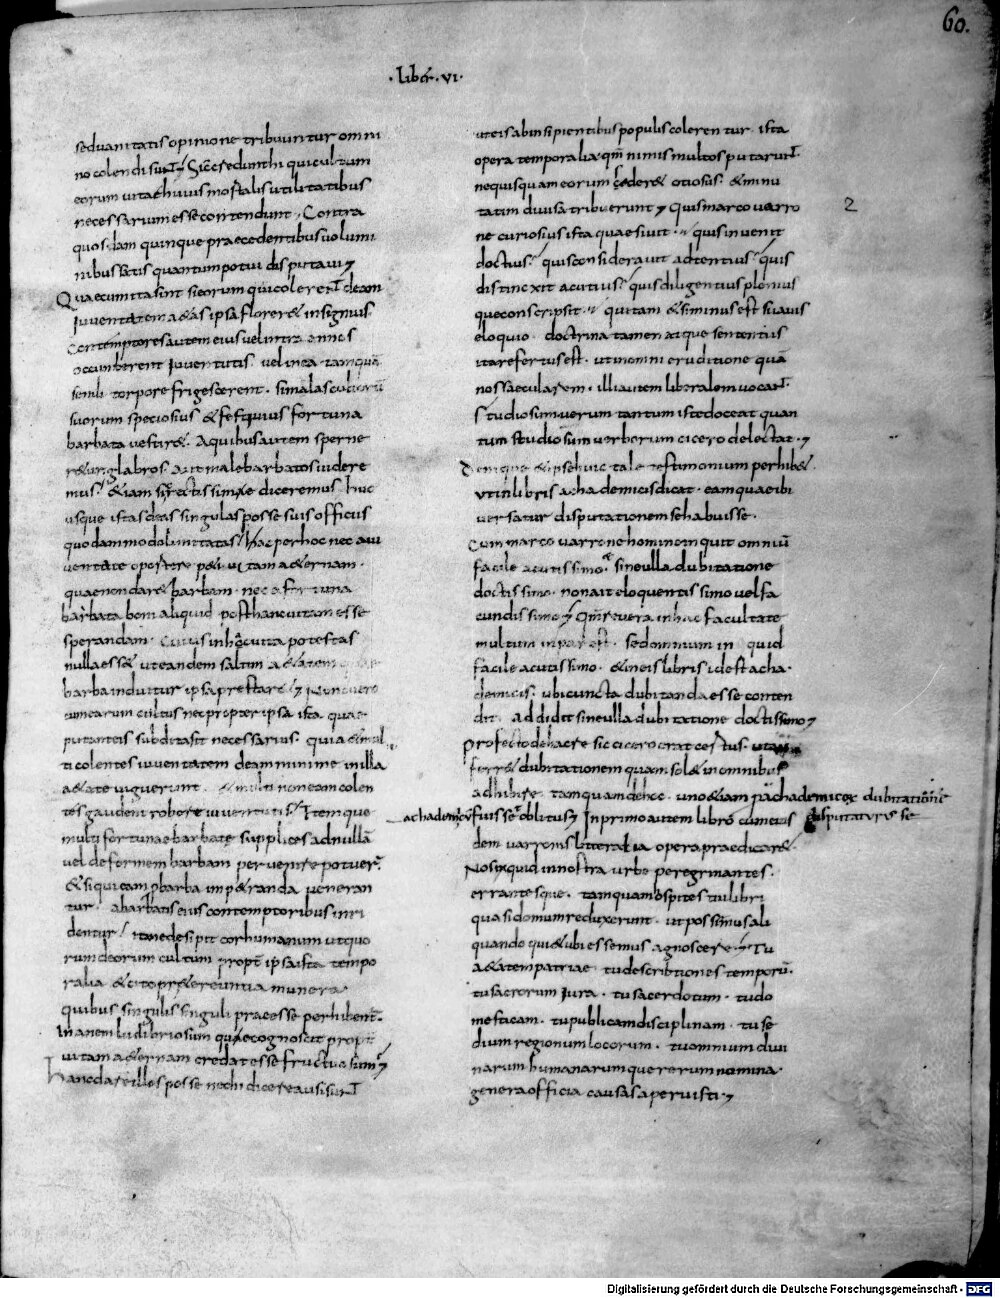 60.
· liber · vi ·
sed uanitatis opinione tribuuntur omni
no colendi sunt; Sic sedunthi qui cultum
eorum uitae huius mortalis utilitatibus
necessarium esse contendunt; Contra
quos iam quinque praecedentibus uolumi
nibus satis quantum potui disputaui;
Quae cum ita sint si eorum qui colerent deam
iuuentatem aetas ipsa floreret insignius
contemptores autem eius uel intra annos
occumberent iuuentutis · uel in ea tamquam
senili torpore frigescerent · si malas cultorum
suorum speciosius & festiuius fortuna
barbata uestiret · A quibus autem sperne
retur glabros · aut male barbatos uidere
mus · &iam sic rectissime diceremus · huc
usque istas deas singulas posse suis officiis
quodammodo limitatas / hac per hoc nec a iu
uentate oportere peti uitam aeternam ·
quae non daret barbam · nec a fortuna
barbata boni aliquid post hanc uitam esse
sperandum · Cuius in hac uita potestas
nulla esset ut eandem saltim aetatem quae
barba induitur ipsa prestaret; Nunc uero
cum earum cultus nec propter ipsa ista quae
putant eis subdita sit necessarius · quia & mul
ti colentes iuuentatem deam minime in illa
aetate uiguerunt · & multi non eam colen
tes gaudent robore iuuentutis · Itemque
multi fortunae barbatae supplices ad nullam
uel deformem barbam peruenire potuer
& si qui eam p barba impetranda ueneran
tur · a barbatis eius contemptoribus inri
dentur / itane desipit cor humanum ut quo
rum deorum cultum propt ipsa ista tempo
ralia & cito pr&ereuntia munera
quibus singulis singuli praeesse perhibent
inanem ludibriosum quae cognoscit propt
uitam aeternam credat esse fructuosum;
Hanc dare illos posse nechi dicere ausi sunt
ut eis ab insipientibus populis colerentur · ista
opera temporalia · qm nimis multos putarunt
nequisquam eorum sederet otiosus · & minu
tatim diuisa tribuerunt; Quis marco uarro
2
ne curiosius ista quaesiuit · quis inuenit
doctius · quis considerauit adtentius · quis
distinxit acutius · quis diligentius plenius
que conscripsit · qui tam &si minus est suauis
eloquio · doctrina tamen atque sententiis
ita refertus est · ut in omni eruditione quam
nos saecularem · illi autem liberalem uocant
studiosum rerum tantum iste doceat quan
tum studiosum uerborum cicero delectat;
Denique & ipse huic tale testimonium perhibet
ut in libris achademicis dicat · eam quae ibi
uersatur disputationem se habuisse ·
Cum marco uarrone homine inquit omnium
facile acutissimo · & sine ulla dubitatione
doctissimo · non ait eloquentissimo uel fa
cundissimo; Qm reuera in hac facultate
multum inpar est · sed omnium inquid
facile acutissimo · & in eis libris id est acha
demicis · ubi cuncta dubitanda esse conten
dit · addidit sine ulla dubitatione doctissimo;
profecto de hac re sic cicero erat certus · ut au
ferret dubitationem quam solet in omnibus
adhibere · tamquam de hoc uno &iam p achademicorum dubitatione disputaturus se
achademicum fuisse oblitus; In primo autem libro cum eius
dem uarronis litteralia opera praedicaret ·
Nos inquid in nostra urbe peregrinantes ·
errantesque · tamquam ospites tui libri
quasi domum reduxerunt · ut possimus ali
quando qui & ubi essemus agnoscere; Tu
aetatem patriae tu descriptiones temporum ·
tu sacrorum iura · tu sacerdotum · tu do
mesticam · tu publicam disciplinam · tu se
dium regionum locorum · tu omnium diui
narum humanarumque rerum nomina
genera officia causas aperuisti;
Digitalisierung gefördert durch die Deutsche Forschungsgemeinschaft - DFG